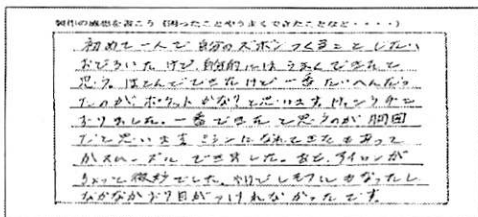 製作の感想を書こう(困ったことやうまくできたことなど・・・・)
初めて一人で自分のズボンつくることしたい
おどろいたけど、自分的にはうまくできたと
思う。ほとんどできたけど一番たいへんだっ
たのが、ポケットかな?と思います
一番できたと思うのが胴囲
だと思います ミシンになれてきたもあって
かスムーズルできました。あと、アイロンが
ちょっと微妙でした。
なかなかおり目がつけれなかったです。